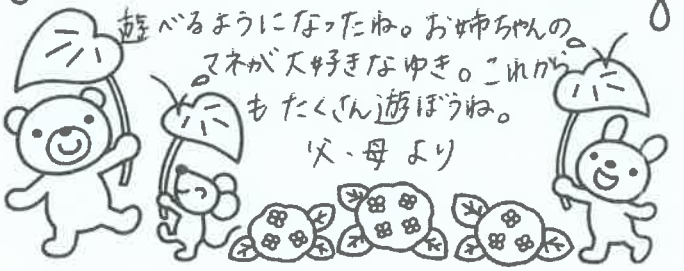 遊べるようになったね。お姉ちゃんの
マネが大好きなゆき。これから
もたくさん遊ぼうね。
父、母より